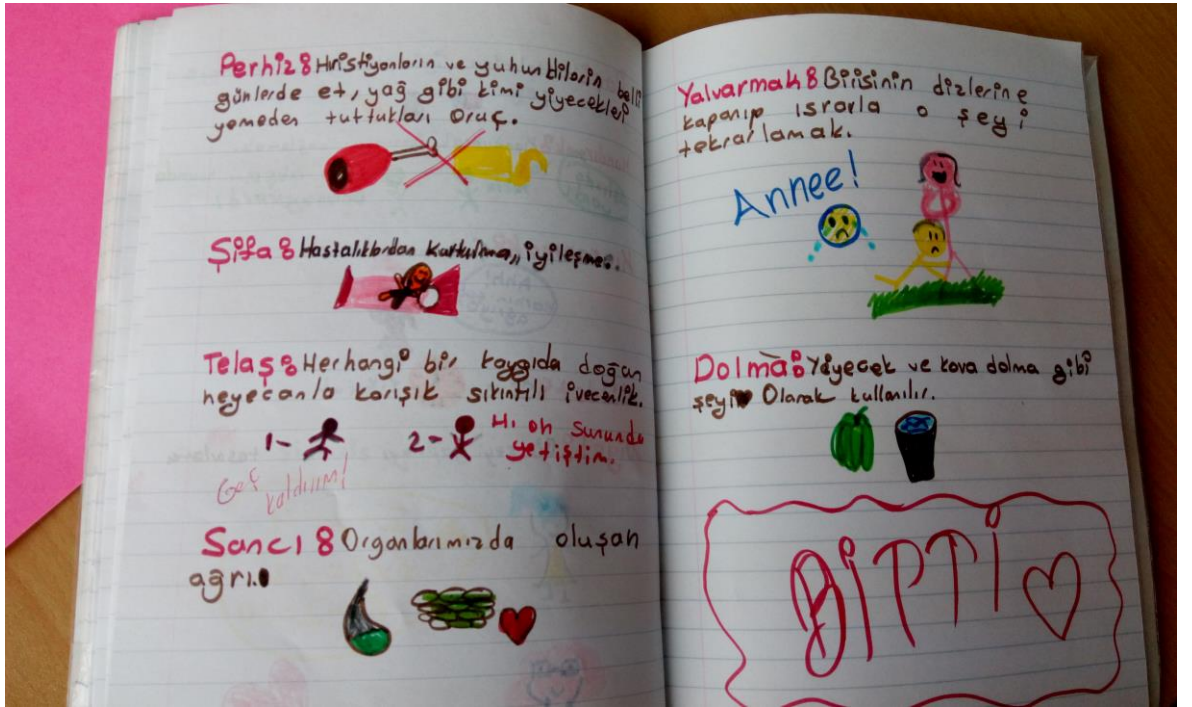 Perhiz: Hıristiyanların ve yuhundilerin belli
günlerde et, yağ gibi kimi yiyecekleri
yemeden tuttukları oruç.
Şifa: Hastalıklardan kurtulma, iyileşme.
Telaş: Herhangi bir kaygıda doğan
heyecanla karışık sıkıntılı ivecenlik.
1-
2-
Hı oh sununda
yetiştim.
Geç
kaldıım!
Sancı: Organlarımızda oluşan
ağrı.
Yalvarmak: Birisinin dizlerine
kapanıp ısrarla o şeyi
tekrarlamak.
Annee!
Dolma: Yiyecek ve kova dolma gibi
şeyi Olarak kullanılır.
BİTTİ